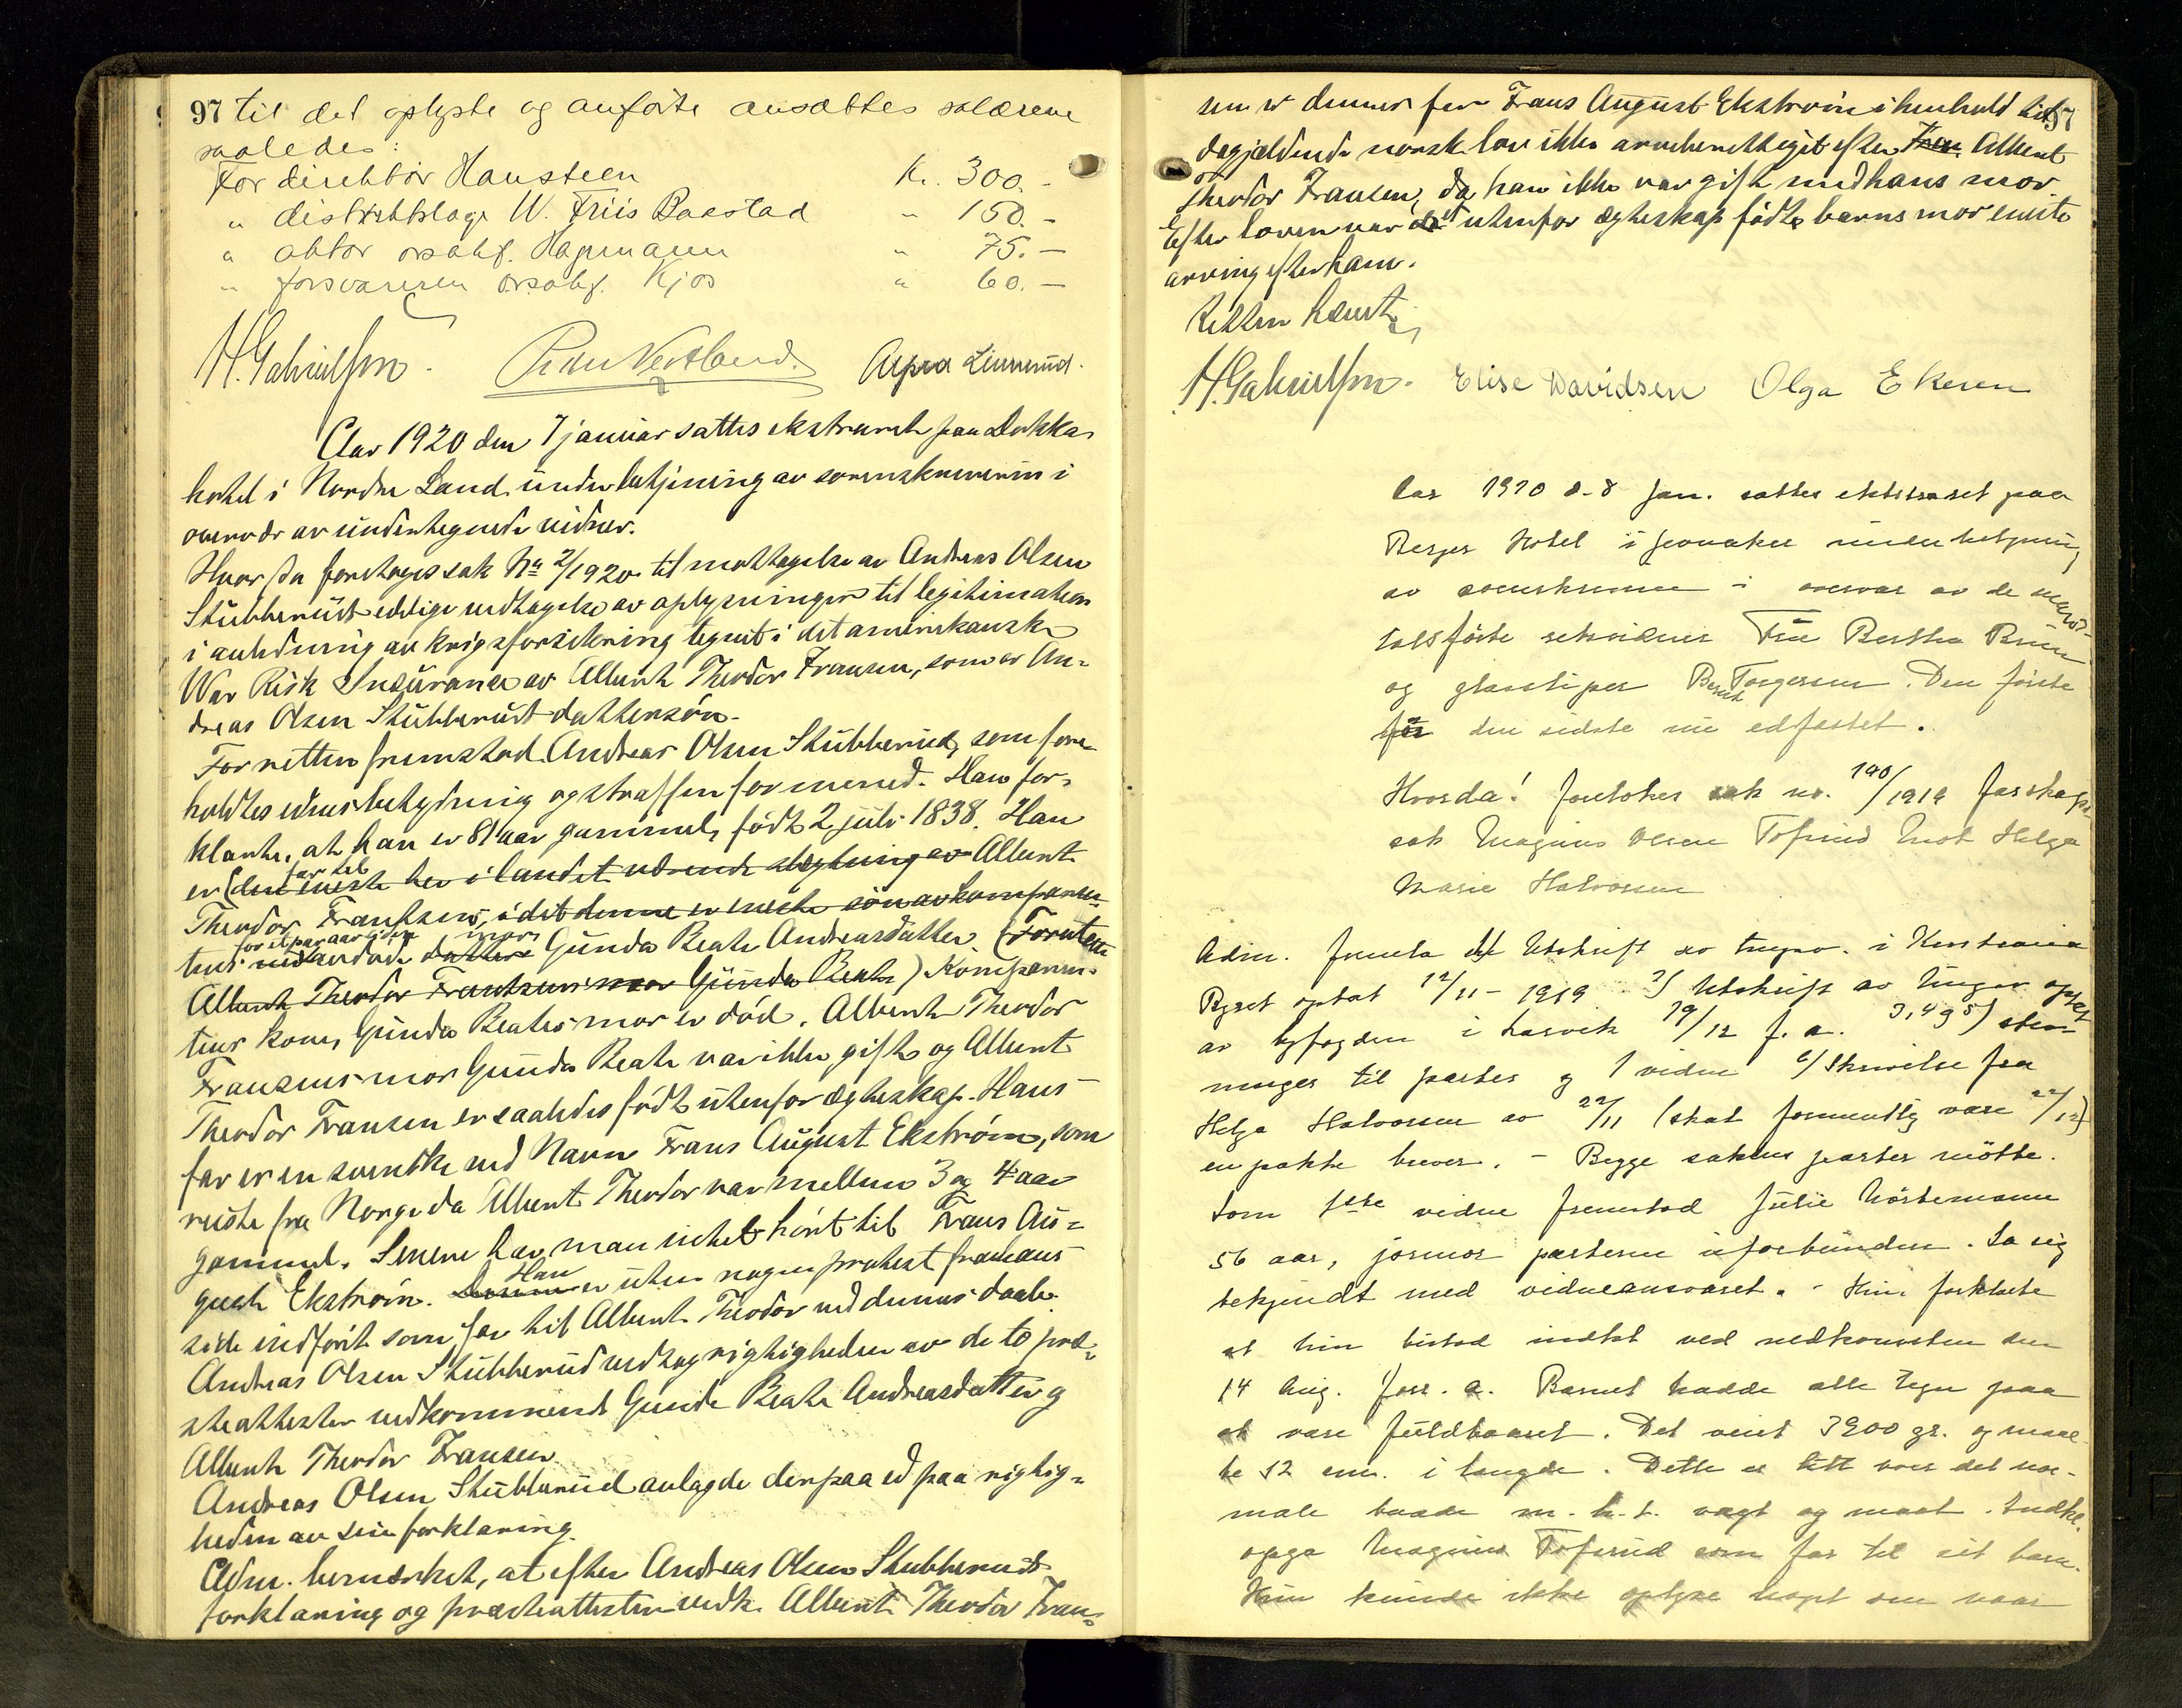 97 til det oplyste og anførte ansættes salærene
saaledes:
For direktør Hansteen Kr. 300.-
" distriktslæge W. Friis Baastad " 150.-
" aktor osakf. Hagemann " 75.-
" forsvareren osakf. Kjos " 60.-
H. Gabrielsen. Peder Alfred Linnerud.
Aar 1920 den 7 januar sattes ekstraret paa Dokka
hotel i Nordre Land under betjening av sorenskriveren i
overvær av undertegnede vidner.
Hvor da foretoges sak No 2/1920 til mottagelse av Andreas Olsen
Stubberud edelige vedtagelse av oplysninger til legitimation
i anledning av krigsforsikring tegnet i det amerikanske
War Risk Insurance av Albert Theodor Fransen, som er An-
dreas Olsen Stubberud dattersøn.
For retten fremstod Andreas Olsen Stubberud, som fore-
holdtes edens betydning og straffen for mened. Han for-
klarte, at han er 81 aar gammel, født 2 juli 1838. Han
far til
er (den eneste her i landet værende slegtning av Albert
Theodor Frantzen, idet denne er eneste søn av komparen-
for et par aar siden mor
tens avdøde datter Gunda Beate Andreasdatter. (Foruten
Albert Theodor Frantzens mor Gunda Beate) Komparen-
tens kone, Gunda Beates mor er død. Albert Theodor
Fransens mor Gunda Beate var ikke gift og Albert
Theodor Fransen er saaledes født utenfor egteskap. Hans
far er en svenske ved Navn Frans August Ekstrøm, som
reiste fra Norge da Albert Theodor var mellem 3 og 4 aar
gammel. Senere har man intet hørt til Frans Au-
Han
gust Ekstrøm. Denne er uten nogen protest fra hans
side indført som far til Albert Theodor ved dennes daab.
Andreas Olsen Stubberud vedtog rigtigheden av de to præ-
steattester vedkommende Gunda Beate Andreasdatter og
Albert Theodor Fransen.
Andreas Olsen Stubberud avlagde derpaa ed paa rigtig-
heden av sin forklaring.
Adm. bemerket, at efter Andreas Olsen Stubberuds
forklaring og presteattesten vedk. Albert Theodor Fran-
sen er dennes far Frans August Ekstrøm i henhold til 97
dagjeldende norsk lov ikke arveberettiget efter Fran Albert
Theodor Fransen, da han ikke var gift med hans mor.
Efter loven var det utenfor egteskap fødte barns mor eneste
arving efter ham.
Retten hævet.
H. Gabrielsen. Elise Davidsen Olga Ekeren
Aar 1920 d. 8 Jan. sattes ekstraret paa
Berges Hotel i Jevnaker under betjening
av sorenskriveren i overvær av de mand-
talsførte retsvidner Fru Bertha Bruun
og glassliper Bernt Torgersen. Den første
før den sidste nu edfæstet.
Hvorda! foretokes sak nr. 190/1919 farskaps-
sak Magnus Olsen Tofsrud mot Helga
Marie Halvorsen
Adm. fremla 1/ Utskrift av tingprot. i Kristiania
Byret optat 12/11-1919. 2/ Utskrift av tingprot optat
av byfogden i Larvik 19/12 f. a. 3, 4 og 5) stev-
ninger til parter og 1 vidne 6/ Skrivelse fra
Helga Halvorsen av 22/11 (skal formentlig være 22/12)
en pakke brever. - Begge sakens parter møtte.
Som 1ste vidne fremstod Julie Mørtemann
56 aar, jormor parterne uforbunden. Sa sig
bekjendt med vidneansvaret. - Hun forklarte
at hun bistod indkl. ved nedkomsten den
14 Aug. forr. a. Barnet hadde alle tegn paa
at være fuldbaaret. Det veiet 3900 gr. og maal-
te 52 cm. i længde. Dette er litt over det nor-
male baade m. h. t. vægt og maal. Indkl.
opga Magnus Tofsrud som far til sit barn.
Hun kunde ikke oplyse noget om naar